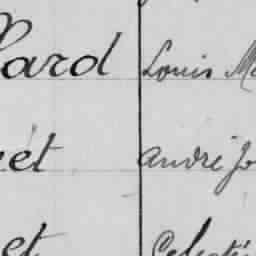 lard Louis Ma
et André Jo
et Célesti